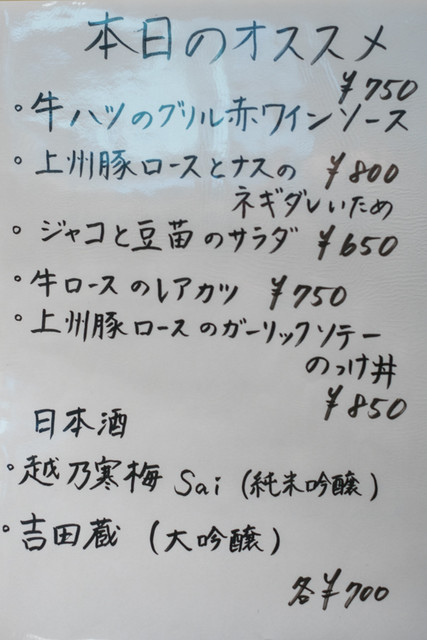 本日のオススメ
¥750
・牛ハツのグリル赤ワインソース
・上州豚ロースとナスの ¥800
ネギダレいため
・ジャコと豆苗のサラダ ¥650
・牛ロースのレアカツ ¥750
・上州豚ロースのガーリックソテー
のっけ丼
¥850
日本酒
・越乃寒梅 Sai (純米吟醸)
・吉田蔵 (大吟醸)
各¥700